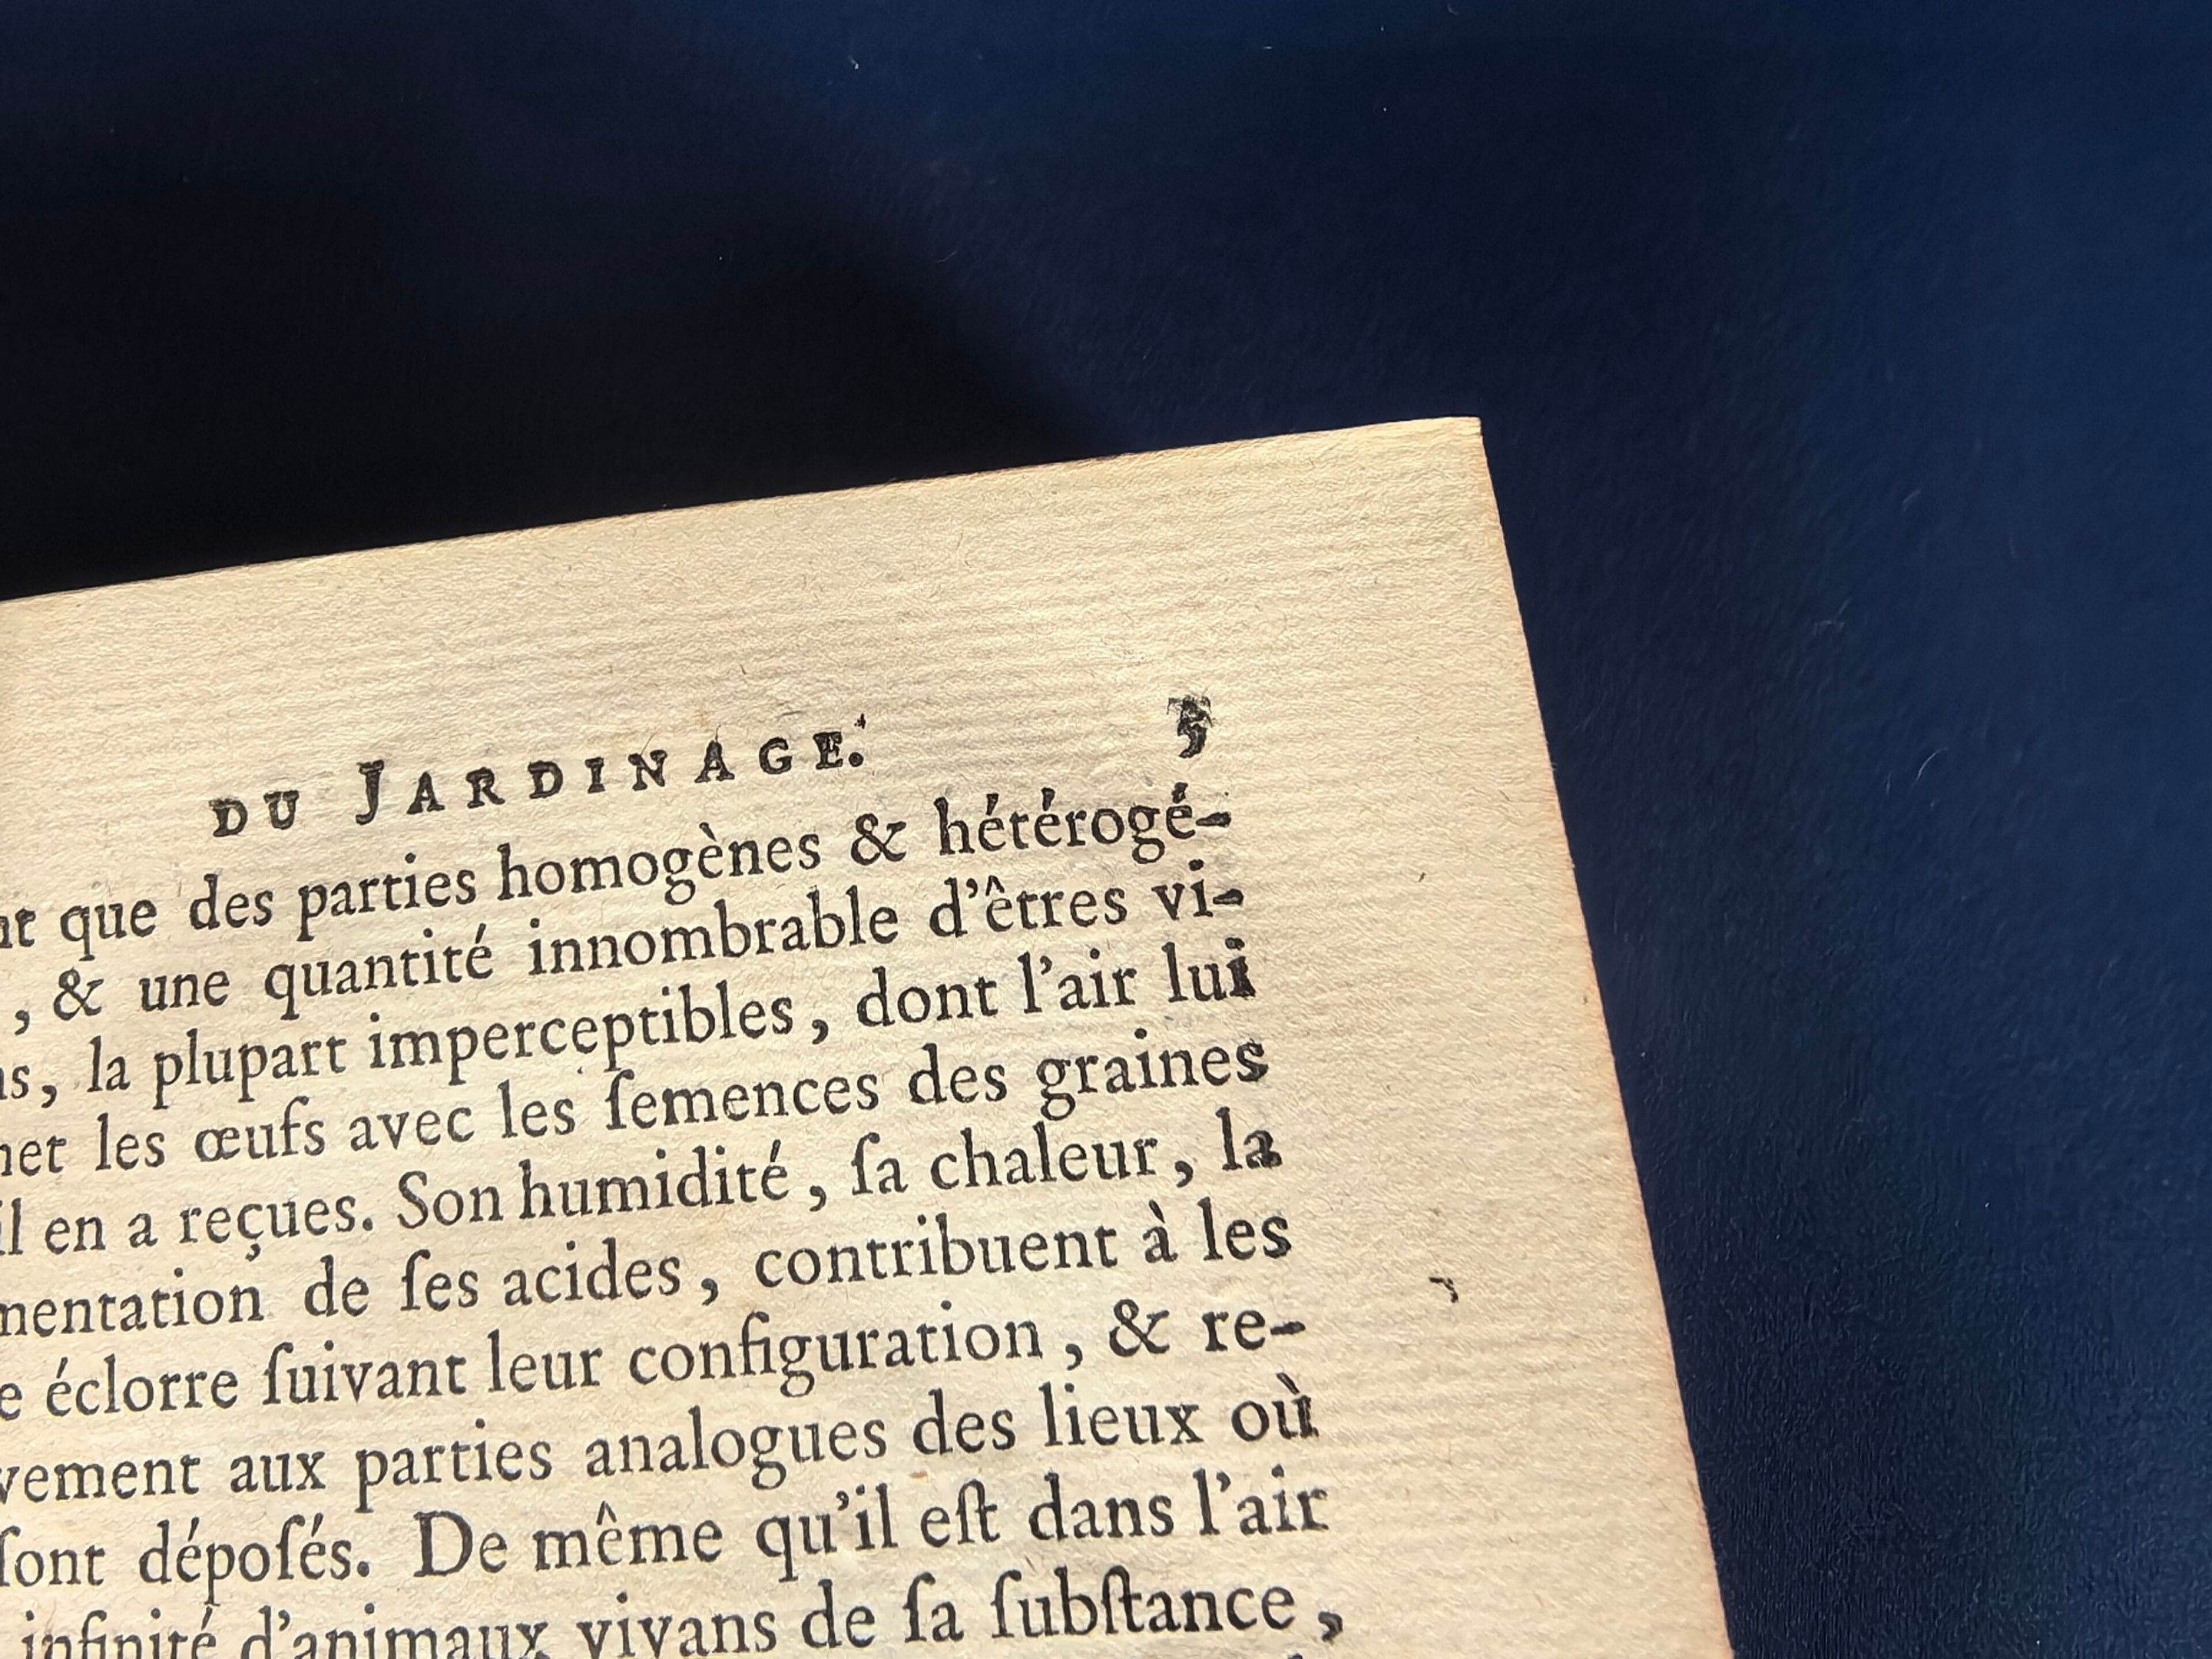 DU JARDINAGE.
que des parties homogènes & hétérogé-
, & une quantité innombrable d'êtres vi-
, la plupart imperceptibles, dont l'air lui
les œufs avec les ſemences des graines
il en a reçues. Son humidité, ſa chaleur, la
mentation de ſes acides, contribuent à les
e éclorre ſuivant leur configuration, & re-
vement aux parties analogues des lieux où
ſont dépoſés. De même qu'il eſt dans l'air
infinité d'animaux vivans de ſa ſubſtance,